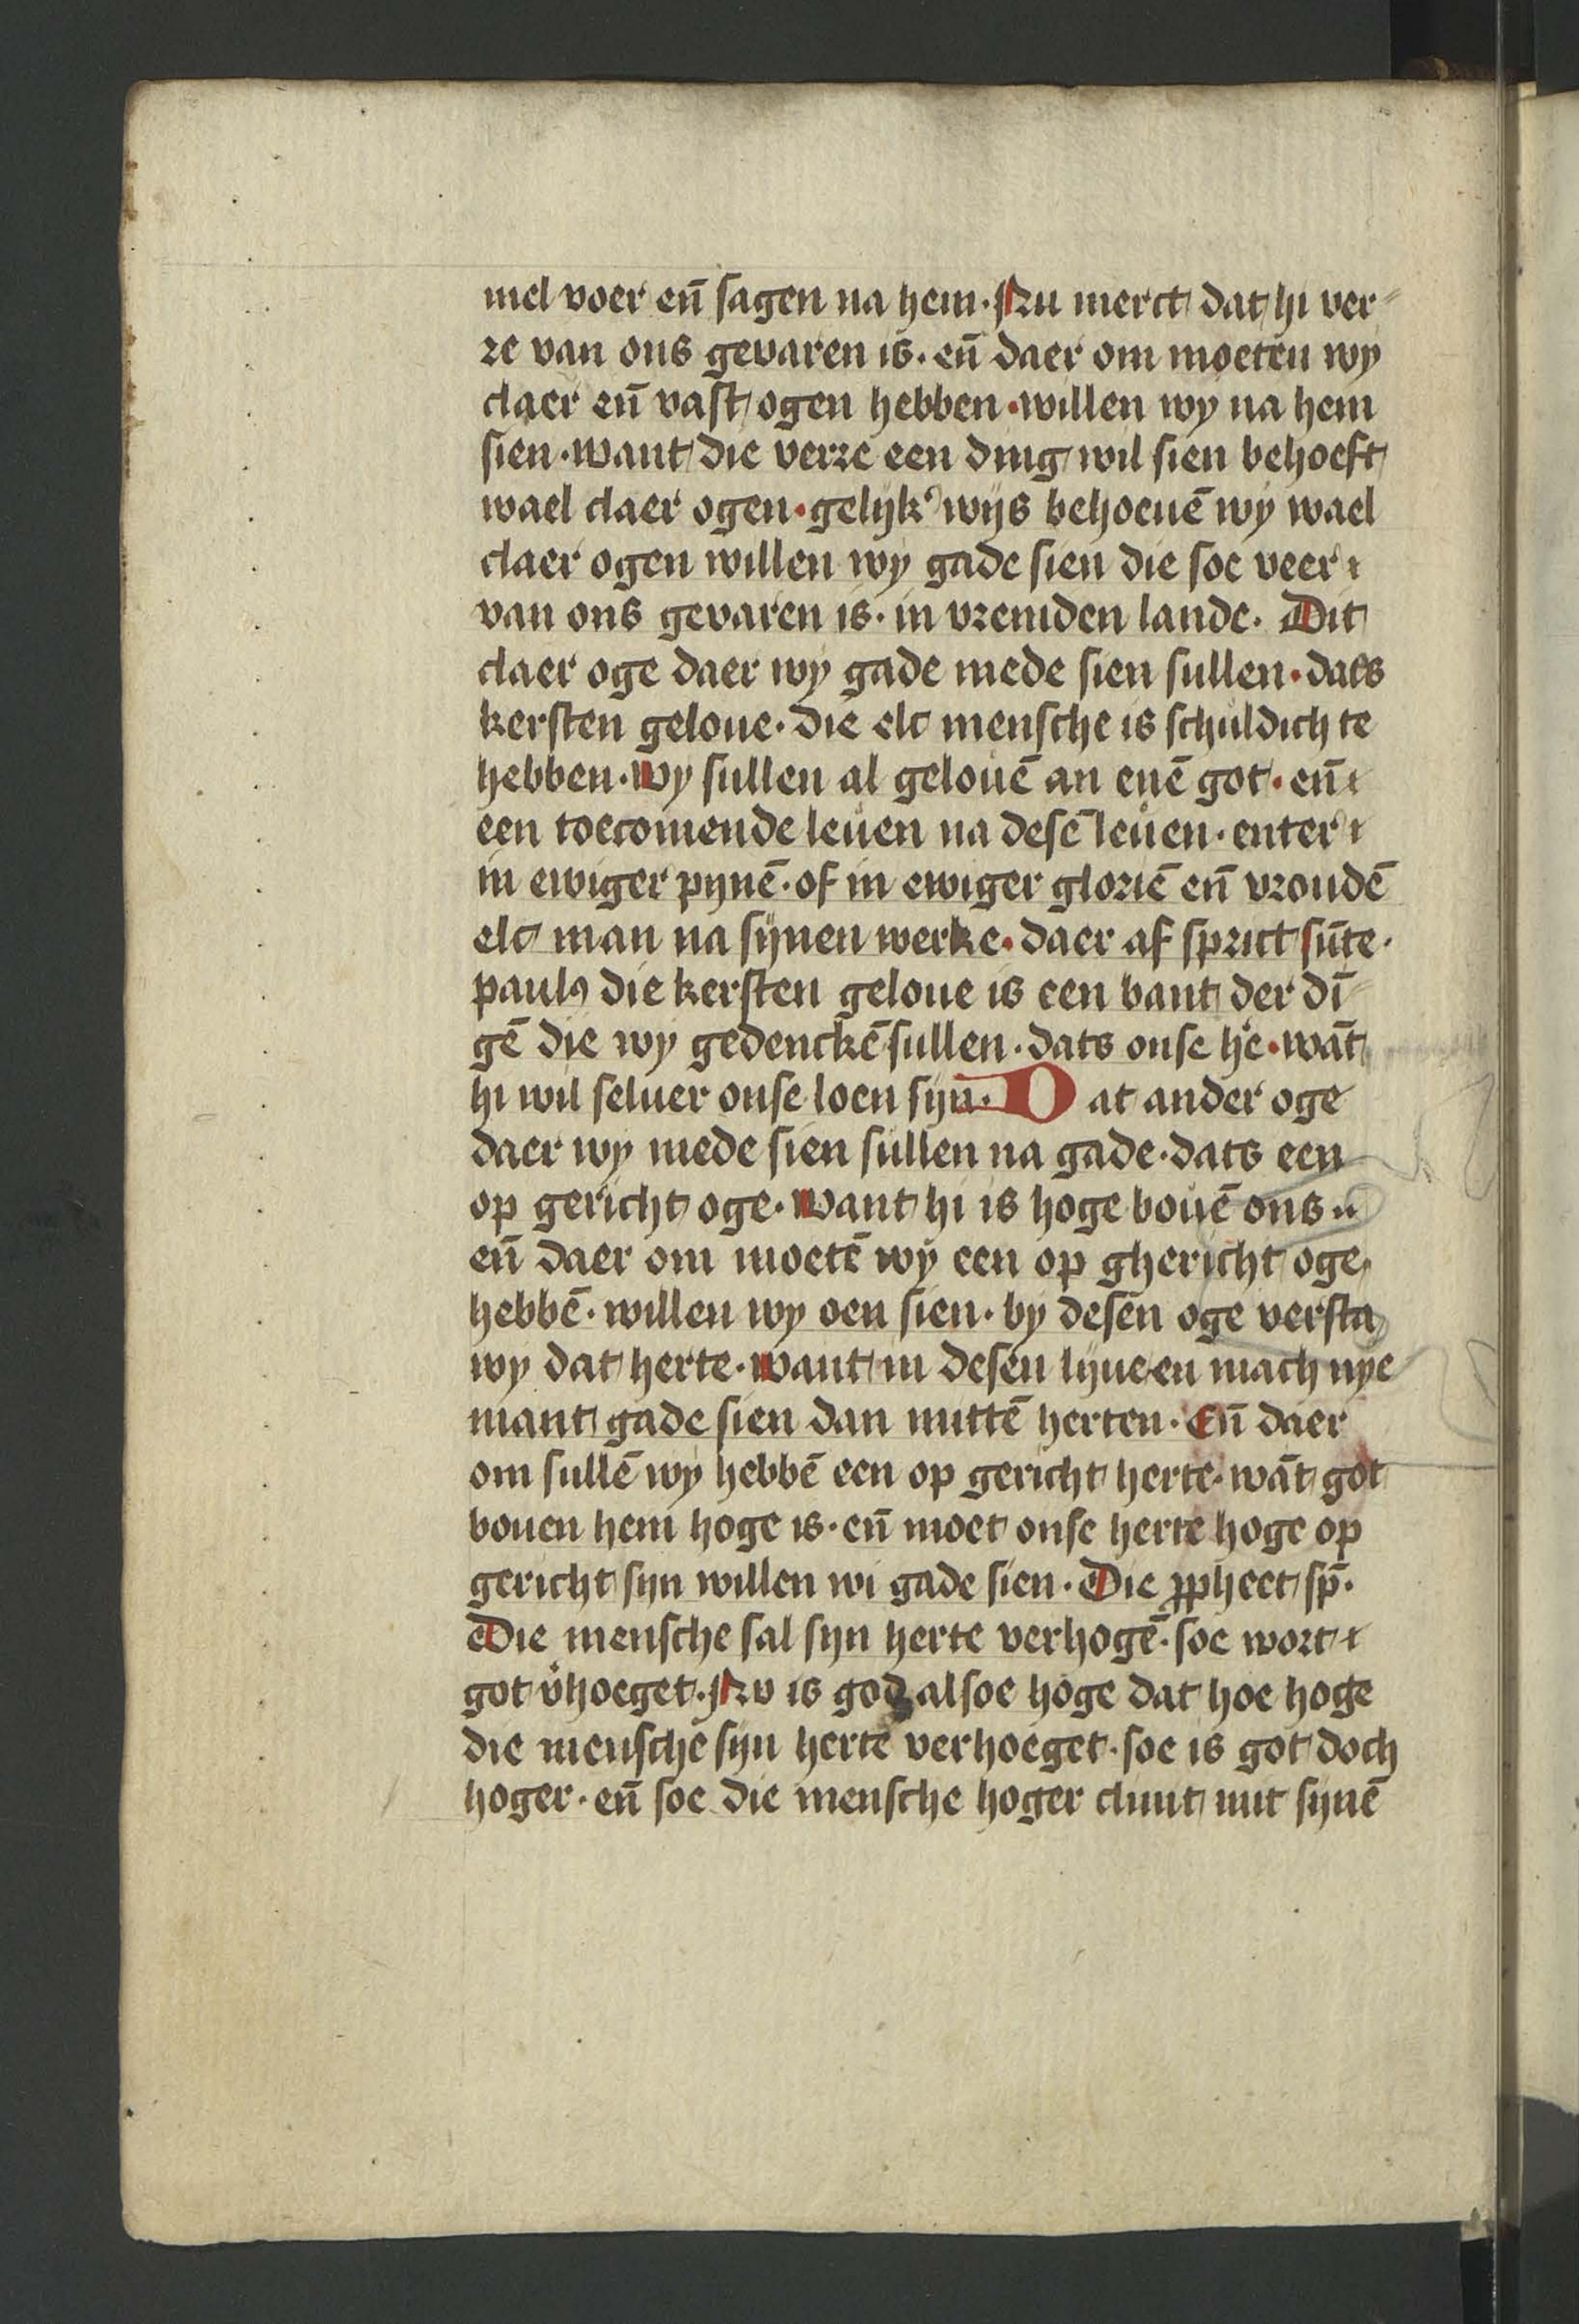 mel voer en̄ sagen na hem. Nu merct dat hi ver-
re van ons gevaren is. en̄ daer om moeten wy
claer en̄ vast ogen hebben. willen wy na hem
sien. want die verre een ding wil sien behoeft
wael claer ogen. gelijk wijs behoeuē wy wael
claer ogen willen wy gade sien die soe veer
van ons gevaren is. in vremden lande. Dit
claer oge daer wy gade mede sien sullen. dats
kersten geloue. die elc mensche is schuldich te
hebben. Wy sullen al gelouē an enē got. en̄
een toecomende leuen na desē leuen. enter
in ewiger pynē. of in ewiger gloriē en̄ vroudē
elc man na sijnen werke. daer af sprict sūte.
paulꝰ die kersten geloue is een bant der dī
gē die wy gedenckē sullen. dats onse he͛. wāt
hi wil seluer onse loen sijn. Dat ander oge
daer wy mede sien sullen na gade. dats een
op gericht oge. Want hi is hoge bouē ons
en̄ daer om moetē wy een op ghericht oge
hebbē. willen wy oen sien. by desen oge versta
wy dat herte. want in desen lyue en mach nye
mant gade sien dan mittē herten. En̄ daer
om sullē wy hebbē een op gericht herte. wāt got
bouen hem hoge is. en̄ moet onse herte hoge op
gericht sijn willen wi gade sien. Die ꝓpheet sp̄.
Die mensche sal sijn herte verhogē. soe wort
got v͛hoeget. Nv is god alsoe hoge dat hoe hoge
die mensche sijn herte verhoeget. soe is got doch
hoger. en̄ soe die mensche hoger climt mit sijnē